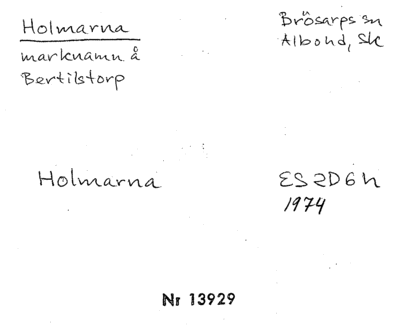 Holmarna
marknamn å
Bertilstorp
Brösarps sn
Albo hd, Sk
Holmarna
ES 2D6h
1974
Nr 13929